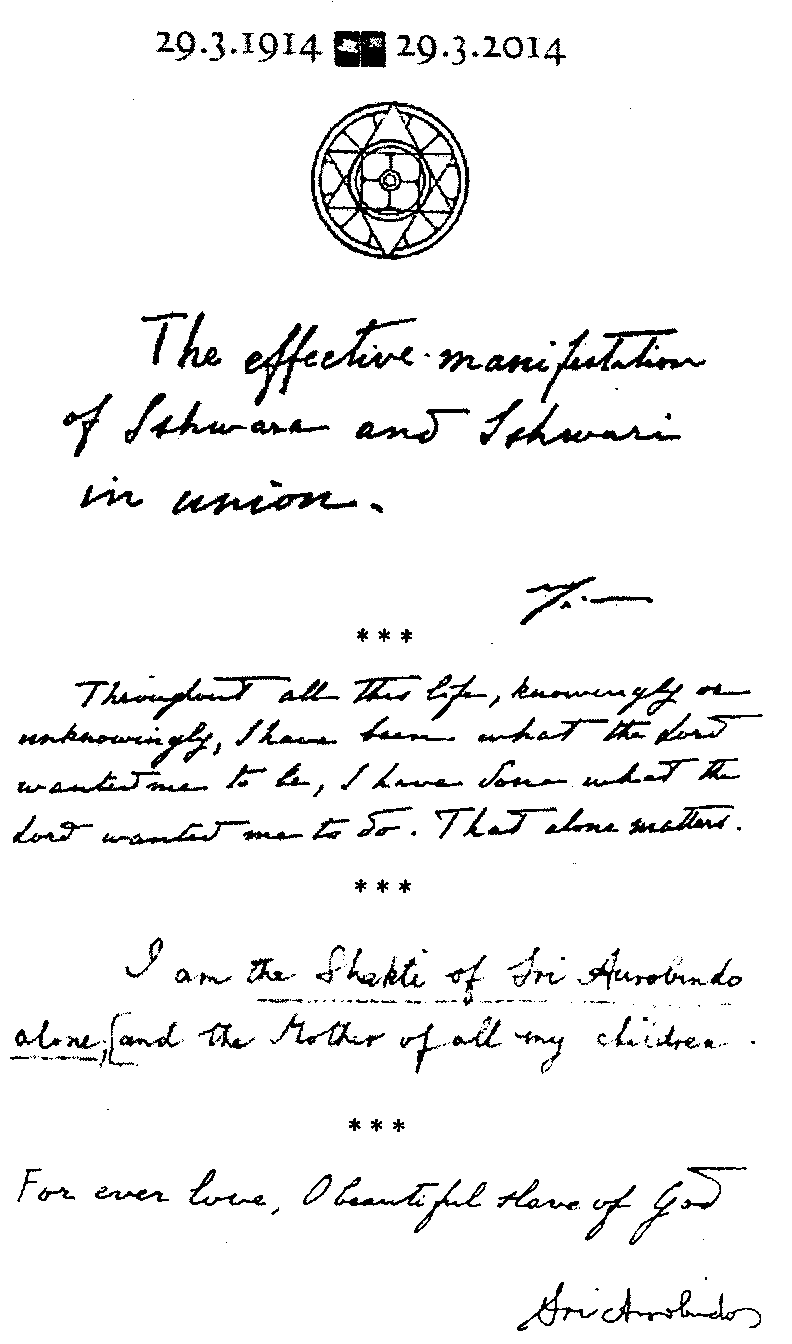 29.3.1914 29.3.2014
The effective manifestation
of Ishwara and Ishwari
in union.
***
Throughout all this life, knowingly or
unknowingly, I have been what the Lord
wanted me to be, I have done what the
Lord wanted me to do. That alone matters.
***
I am the Shakti of Sri Aurobindo
alone, [and the Mother of all my children.
***
For ever love, O beautiful slave of God
Sri Aurobindo